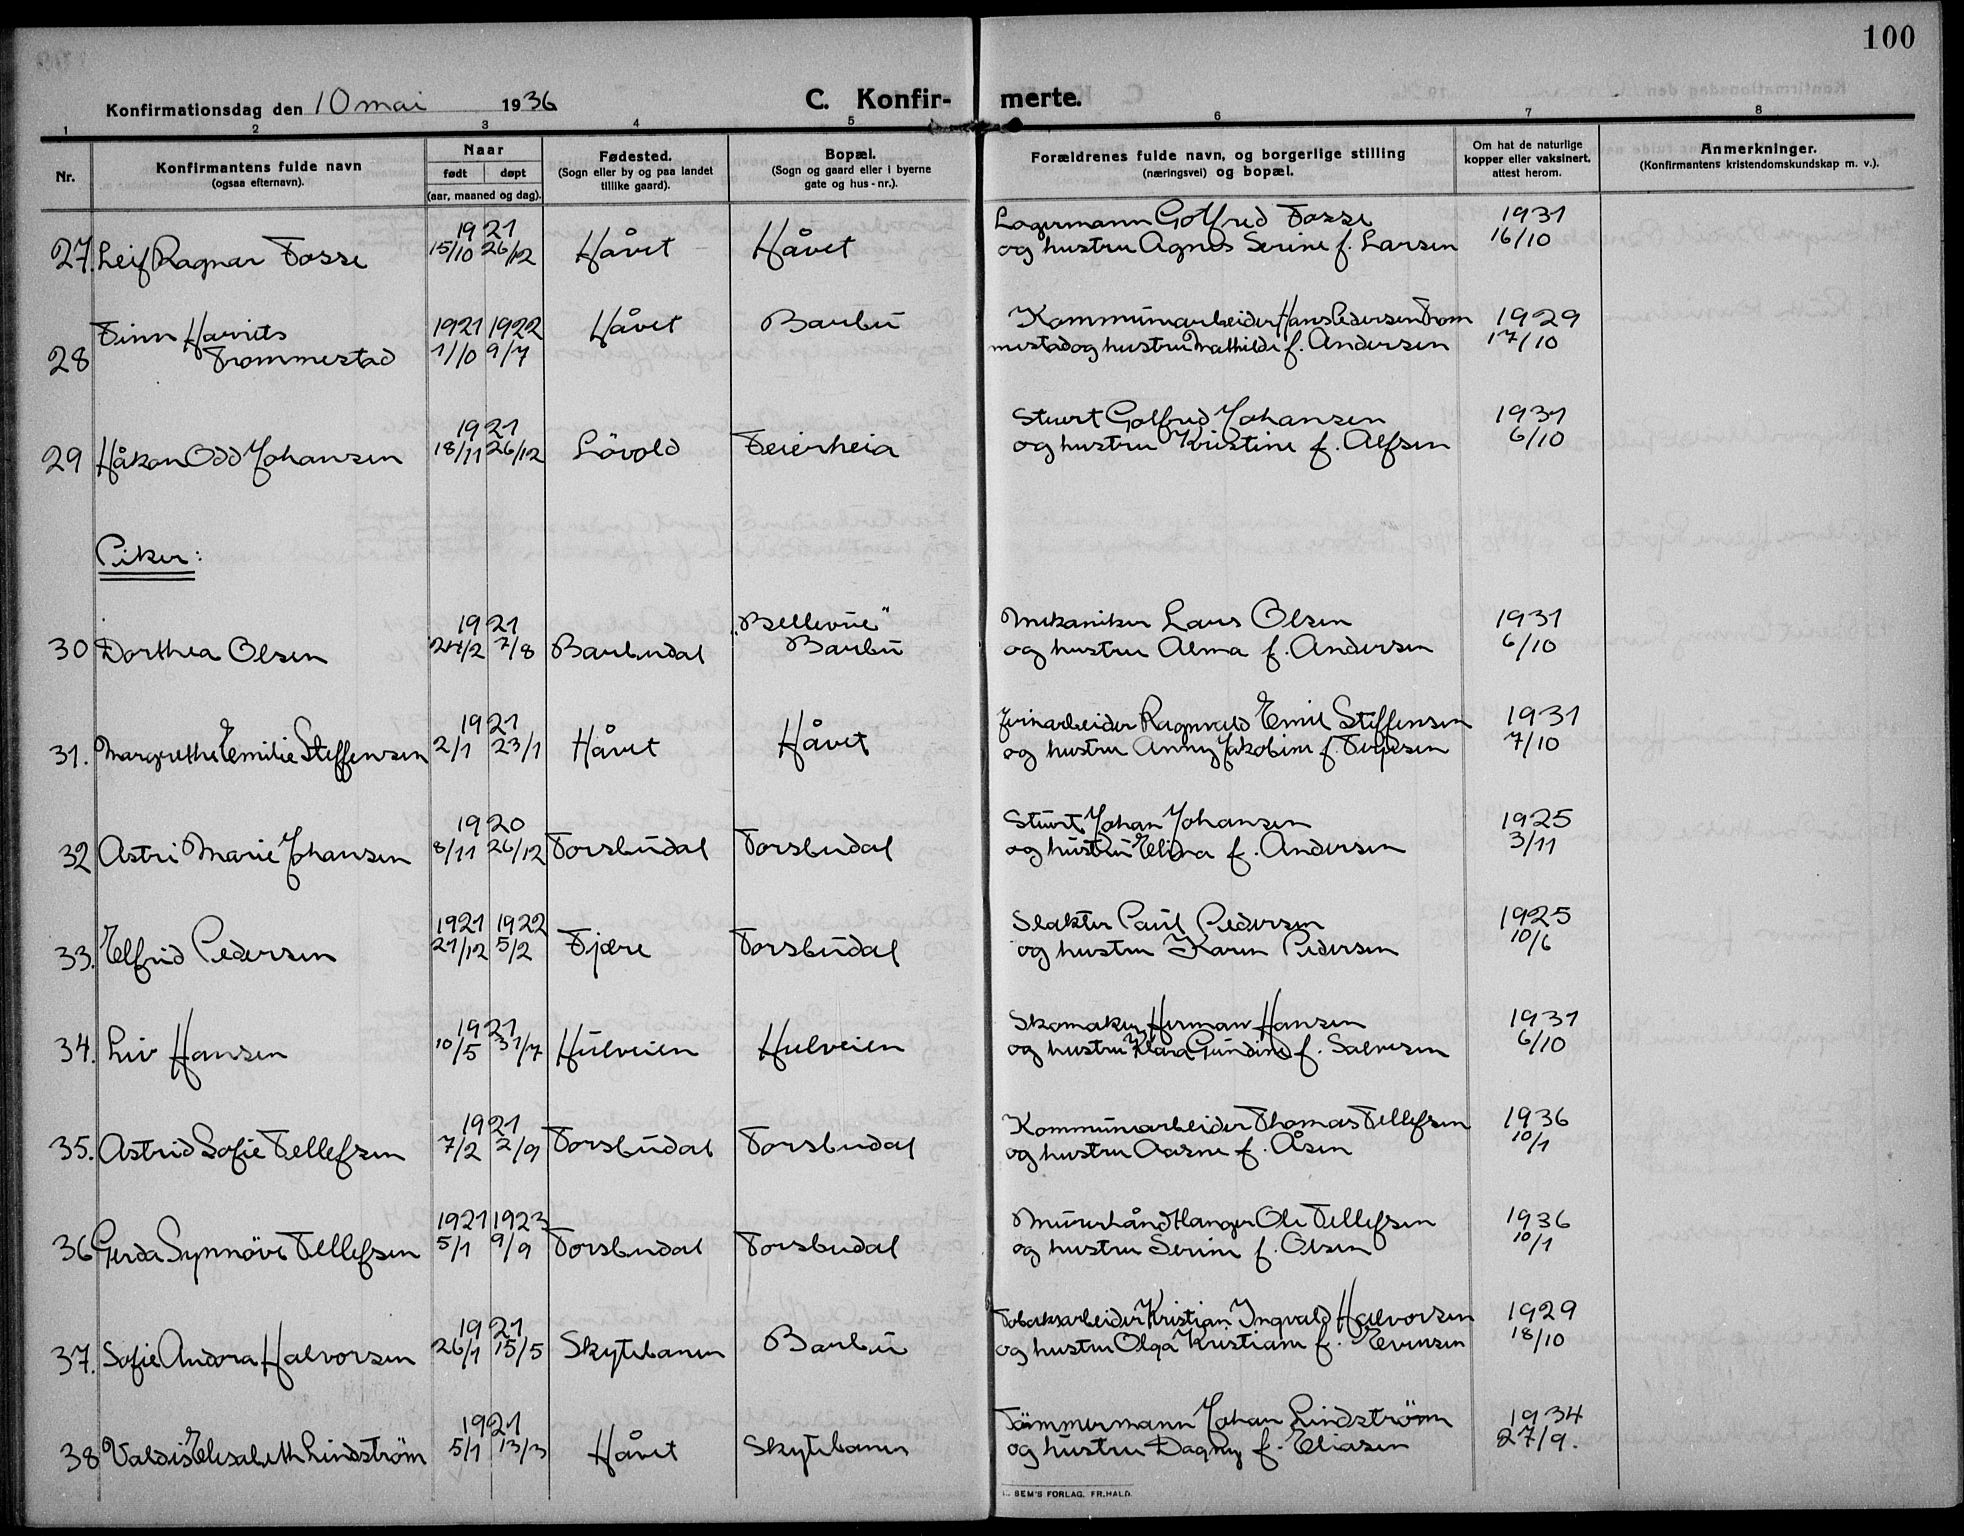 100
Konfirmationsdag den 10 mai 1936 C. Konfir- merte.
1 2 3 4 5 6 7 8
Nr.
Konfirmantens fulde navn
(ogsaa efternavn).
Naar
født døpt
(aar, maaned og dag).
Fødested.
(Sogn eller by og paa landet
tillike gaard).
Bopæl.
(Sogn og gaard eller i byerne
gate og hus-nr.).
Forældrenes fulde navn, og borgerlige stilling
(næringsvei) og bopæl.
Om hat de naturlige
kopper eller vaksinert.
attest herom.
Anmerkninger.
(Konfirmantens kristendomskundskap m. v.).
1921 Lagermann Golfred Fosse 1931
27. Leif Ragnar Fosse 15/10 26/12 Håvet Håvet og hustru Agnes Serine f. Larsen 16/10
Finn Harvits 1921 1922 Håvet Barbu Kommunarbeider Hans Pedersen Trom 1929
28 Trommestad 1/10 9/7 mestad og hustru Mathilde f. Andersen 17/10
1921 Stuert Golfred Johansen 1931
29 Håkon Odd Johansen 18/11 26/12 Lövold Feierheia og hustru Kristine f. Alfsen 6/10
Piker:
1921 "Bellevue" Mekaniker Lars Olsen 1931
30 Dorthea Olsen 24/2 7/8 Barbudal Barbu og hustru Alma f. Andersen 6/10
1921 Jernarbeider Ragnvald Emil Steffensen 1931
31. Margrethe Emilie Steffensen 2/1 23/1 Håvet Håvet og hustru Anny Jakobine f. 7/10
1920 Stuert Johan Johansen 1925
32 Astri Marie Johansen 8/11 26/12 Torsbudal Torsbudal og hustru Elina f. Andersen 3/11
1921 1922 Slakter Paul Pedersen 1925
33. Elfrid Pedersen 21/12 5/2 Fjære Torsbudal og hustru Karen Pedersen 10/6
1921 Skomaker Herman Hansen 1931
34. Liv Hansen 10/5 31/7 Hulveien Hulveien og hustru Klara Gundine f. Salvesen 6/10
1921 Kommunarbeider Thomas Tellefsen 1936
35. Astrid Sofie Tellefsen 7/2 2/9 Torsbudal Torsbudal og hustru Aasne f. Åsen 10/1
1921 1923 Murerhåndtlanger Ole Tellefsen 1936
36 Gerda Synnöve Tellefsen 5/1 9/9 Torsbudal Torsbudal og hustru Serine f. Olsen 10/1
1921 Tobaksarbeider Kristian Ingvald Halvorsen 1929
37. Sofie Andora Halvorsen 26/1 15/5 Skytebanen Barbu og hustru Olga Kristiane f. Evensen 18/10
1921 Tömmermann Johan Lindström 1934
38 Valdis Elisabeth Lindström 5/1 13/3 Håvet Skytebanen og hustru Dagny f. Eliasen 27/9.
SEM'S FORLAG, FR.HALD.